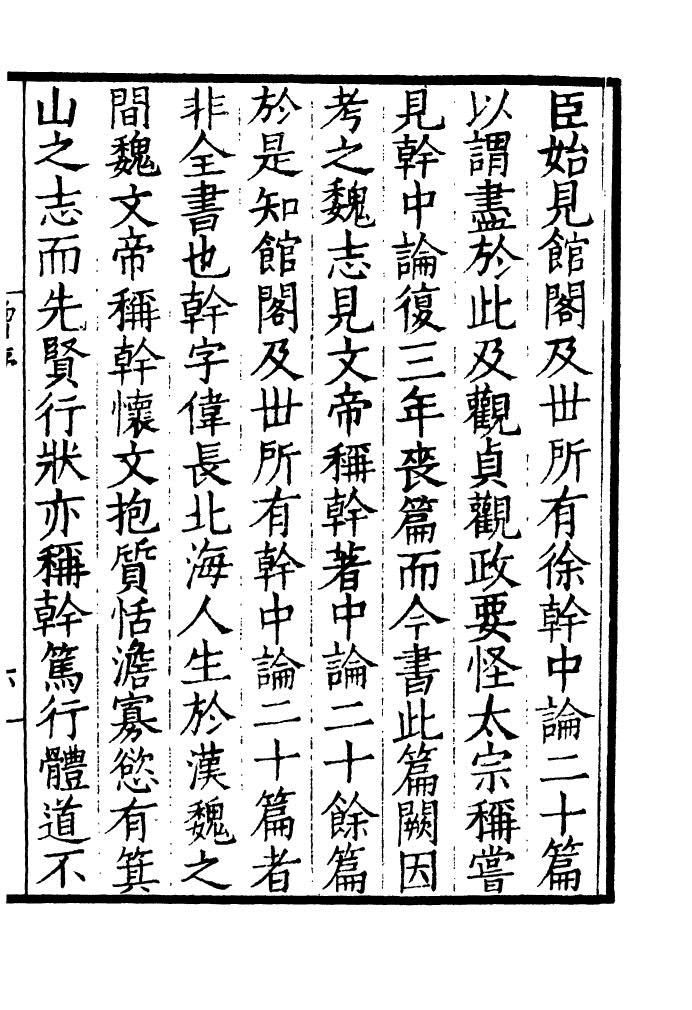 臣始見館閣及丗所有徐幹中論二十篇
以謂盡於此及觀貞觀政要怪太宗稱嘗
見幹中論復三年喪篇而今書此篇闕因
考之魏志見文帝稱幹著中論二十餘篇
於是知館閣及丗所有幹中論二十篇者
非全書也幹字偉長北海人生於漢魏之
間魏文帝稱幹懷文抱質恬澹寡慾有箕
山之志而先賢行狀亦稱幹篤行體道不